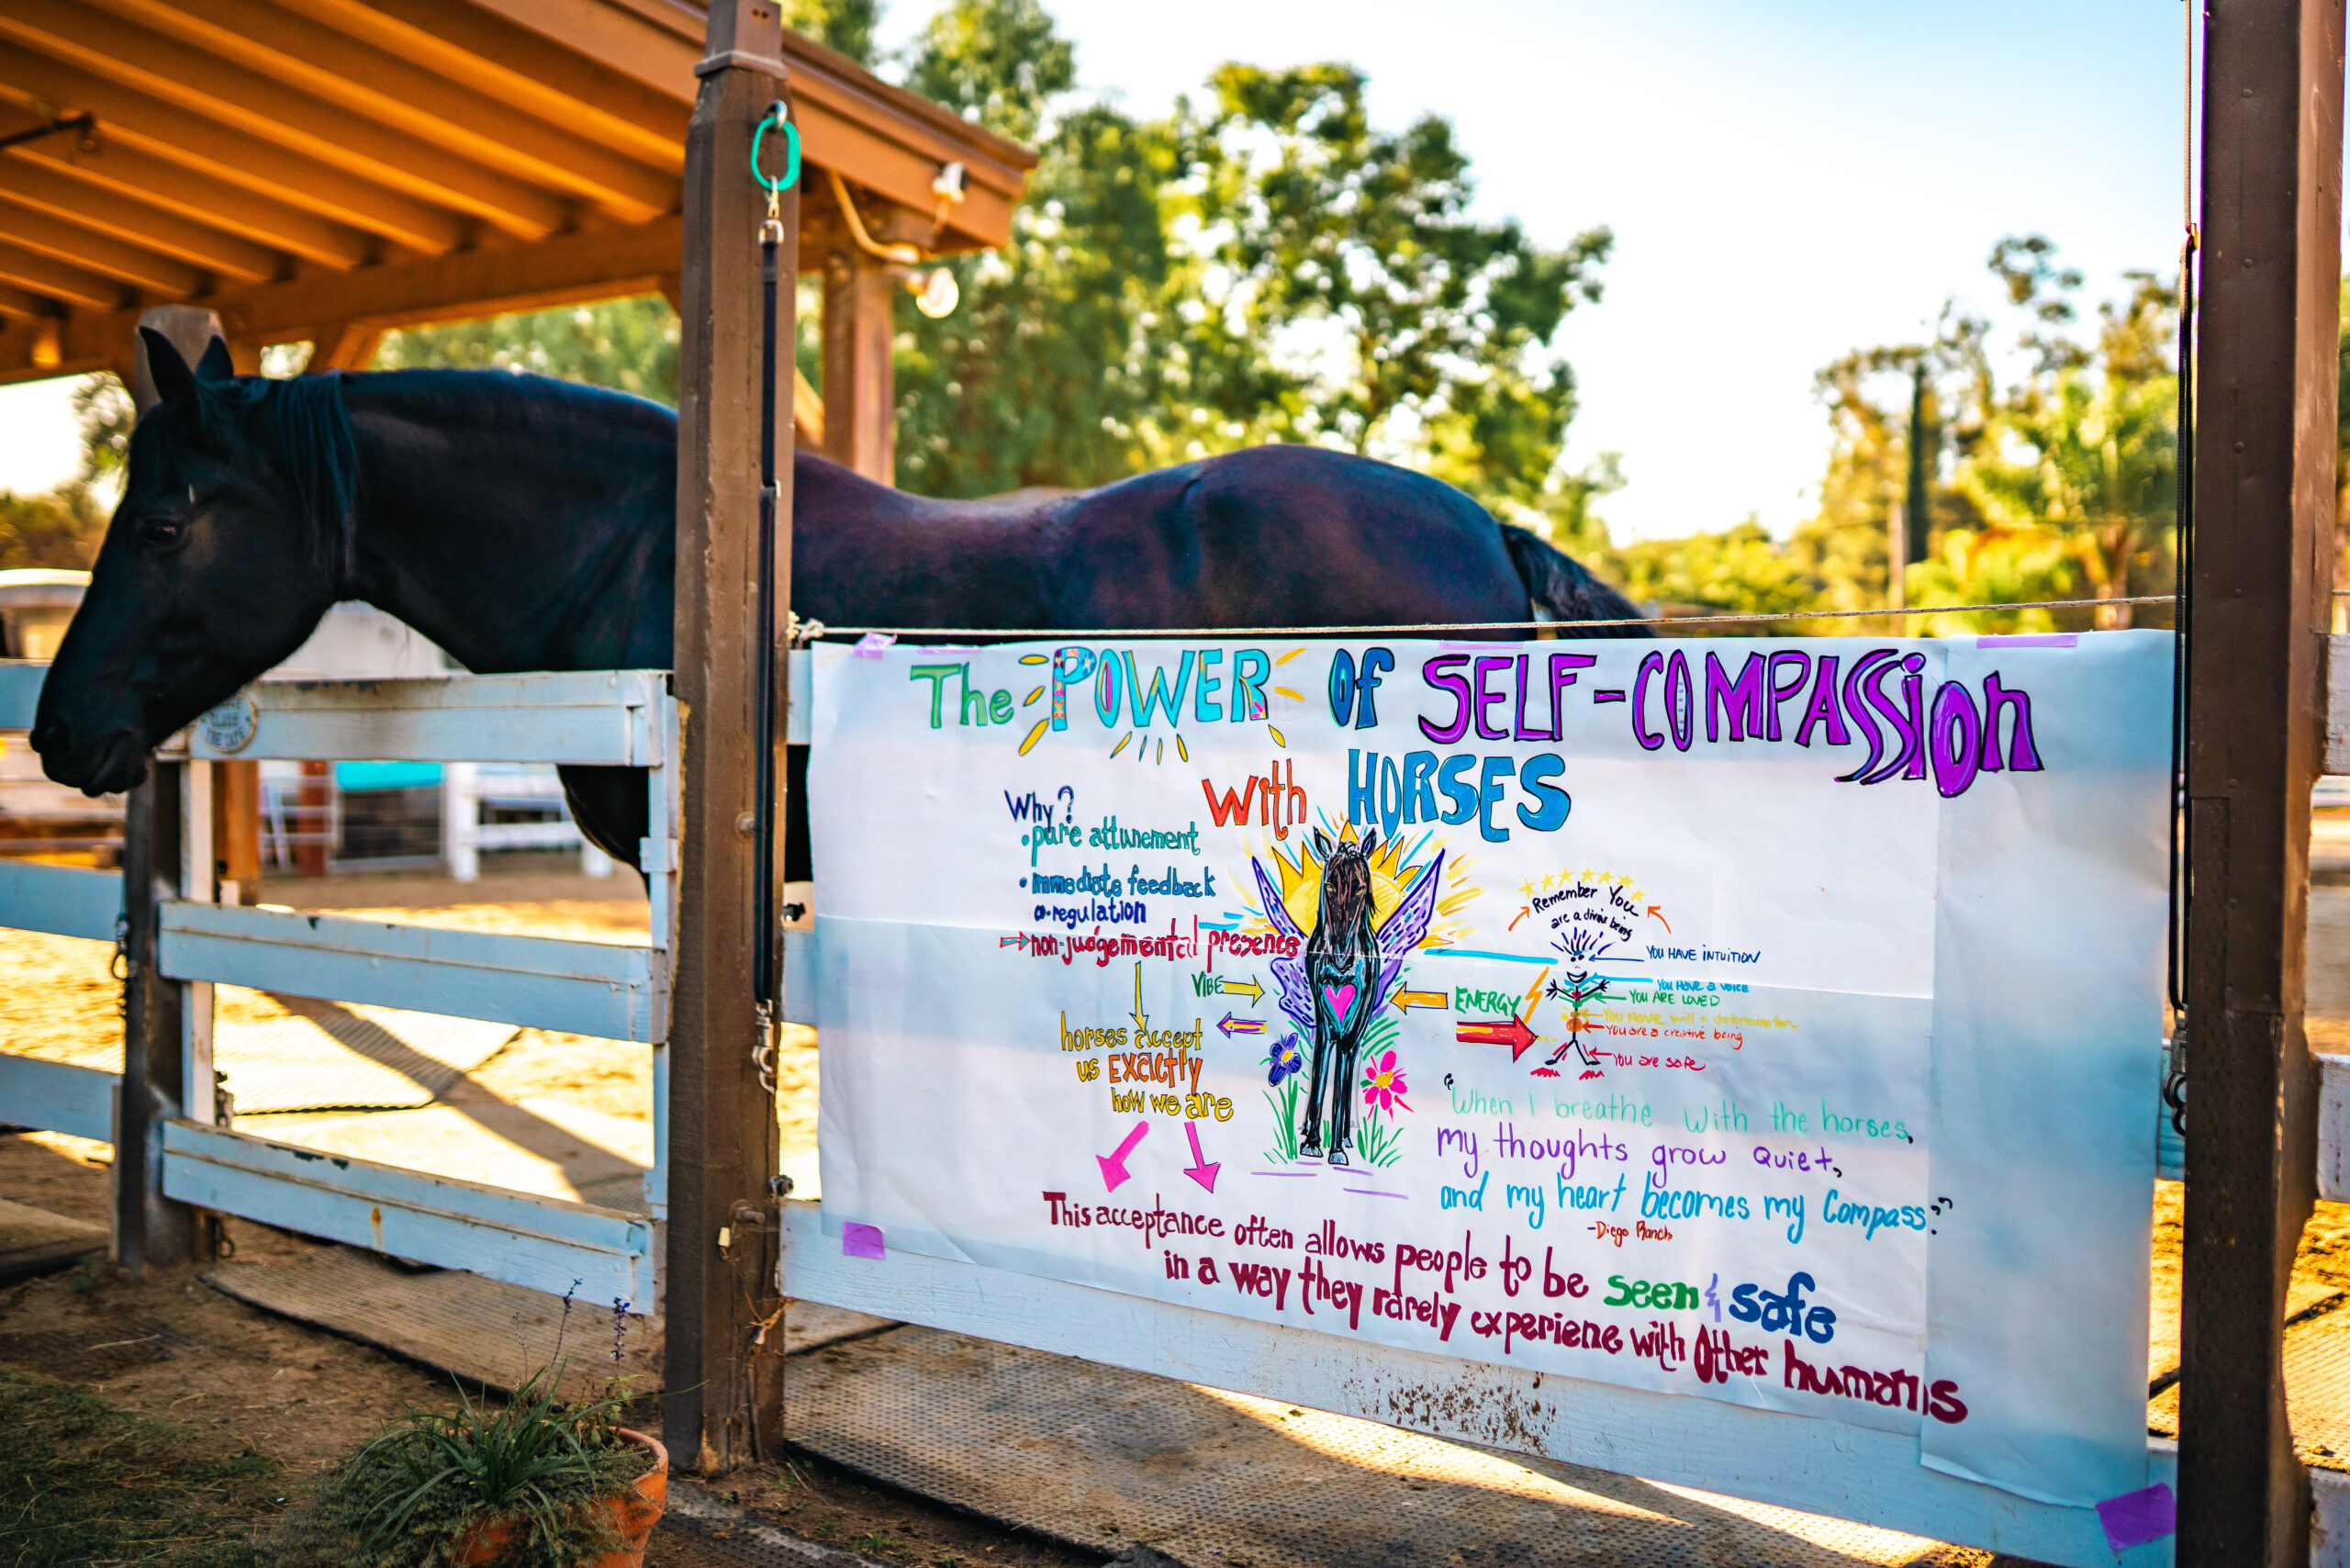 The POWER of SELF-COMPASSion
with HORSES
Why?
• pure attunement
• immediate feedback
co-regulation
non-judgemental presence
horses accept
us EXACTLY
how we are
VIBE
ENERGY
Remember You
are a divine being
YOU HAVE INTUITION
YOU HAVE a VOICE
YOU ARE LOVED
YOU HAVE will + determination
You are a creative being
You are safe
"When I breathe with the horses,
my thoughts grow Quiet,
and my heart becomes my Compass."
-Diego Ranch
This acceptance often allows people to be seen & safe
in a way they rarely experiene with Other humans
CLOSE
THE GATE